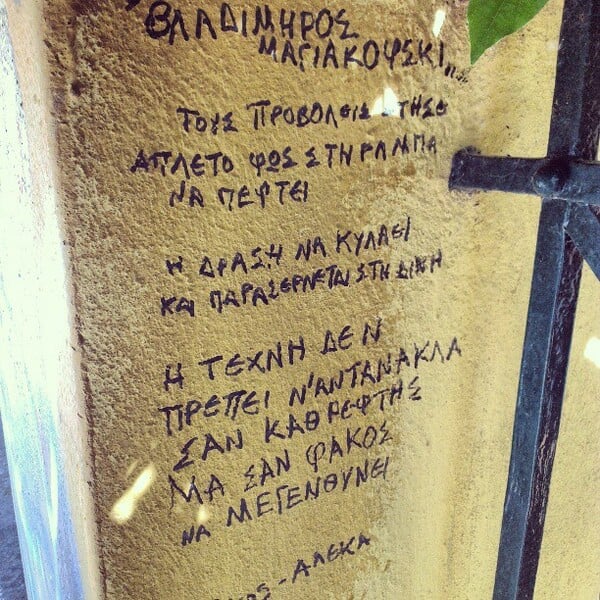 "ΒΛΑΔΙΜΗΡΟΣ
ΜΑΓΙΑΚΟΨΣΚΙ"
ΤΟΥΣ ΠΡΟΒΟΛΕΙΣ ΣΤΗΣΕ
ΑΠΛΕΤΟ ΦΩΣ ΣΤΗ ΡΑΜΠΑ
ΝΑ ΠΕΦΤΕΙ
Η ΔΡΑΣΗ ΝΑ ΚΥΛΑΕΙ
ΚΑΙ ΠΑΡΑΣΕΡΝΕΤΑΙ ΣΤΗ ΔΙΝΗ
Η ΤΕΧΝΗ ΔΕΝ
ΠΡΕΠΕΙ Ν'ΑΝΤΑΝΑΚΛΑ
ΣΑΝ ΚΑΘΡΕΦΤΗΣ
ΜΑ ΣΑΝ ΦΑΚΟΣ
ΝΑ ΜΕΓΕΝΘΥΝΕΙ
- ΑΛΕΚΑ